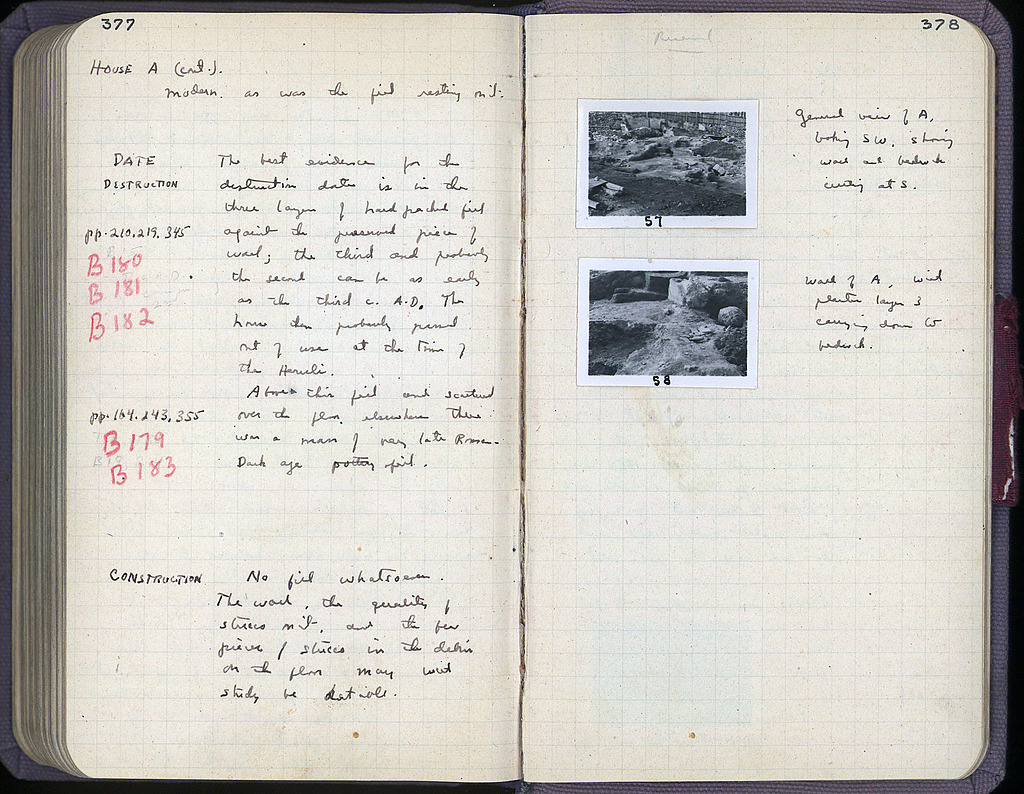 377
HOUSE A (cont.).
modern. as was the fill resting on it.
DATE
DESTRUCTION
The best evidence for the
destruction date is in the
three layers of hard packed fill
pp. 210, 219, 345
against the preserved piece of
B 180
wall; the third and probably
B 181
the second can be as early
as the third c. A.D. The
B 182
house then probably passed
out of use at the time of
the Heruli.
Above this fill and scattered
pp. 164, 243, 355
over the floor elsewhere there
B 179
was a mass of very late Roman-
B 183
Dark age pottery fill.
CONSTRUCTION
No fill whatsoever.
The wall, the quality of
stucco on it, and the few
pieces of stucco in the debris
on the floor may with
study be datable.
378
Removed
57
General view of A,
looking SW, showing
wall and bedrock
cutting at S.
58
Wall of A, with
plaster layer 3
carrying down to
bedrock.